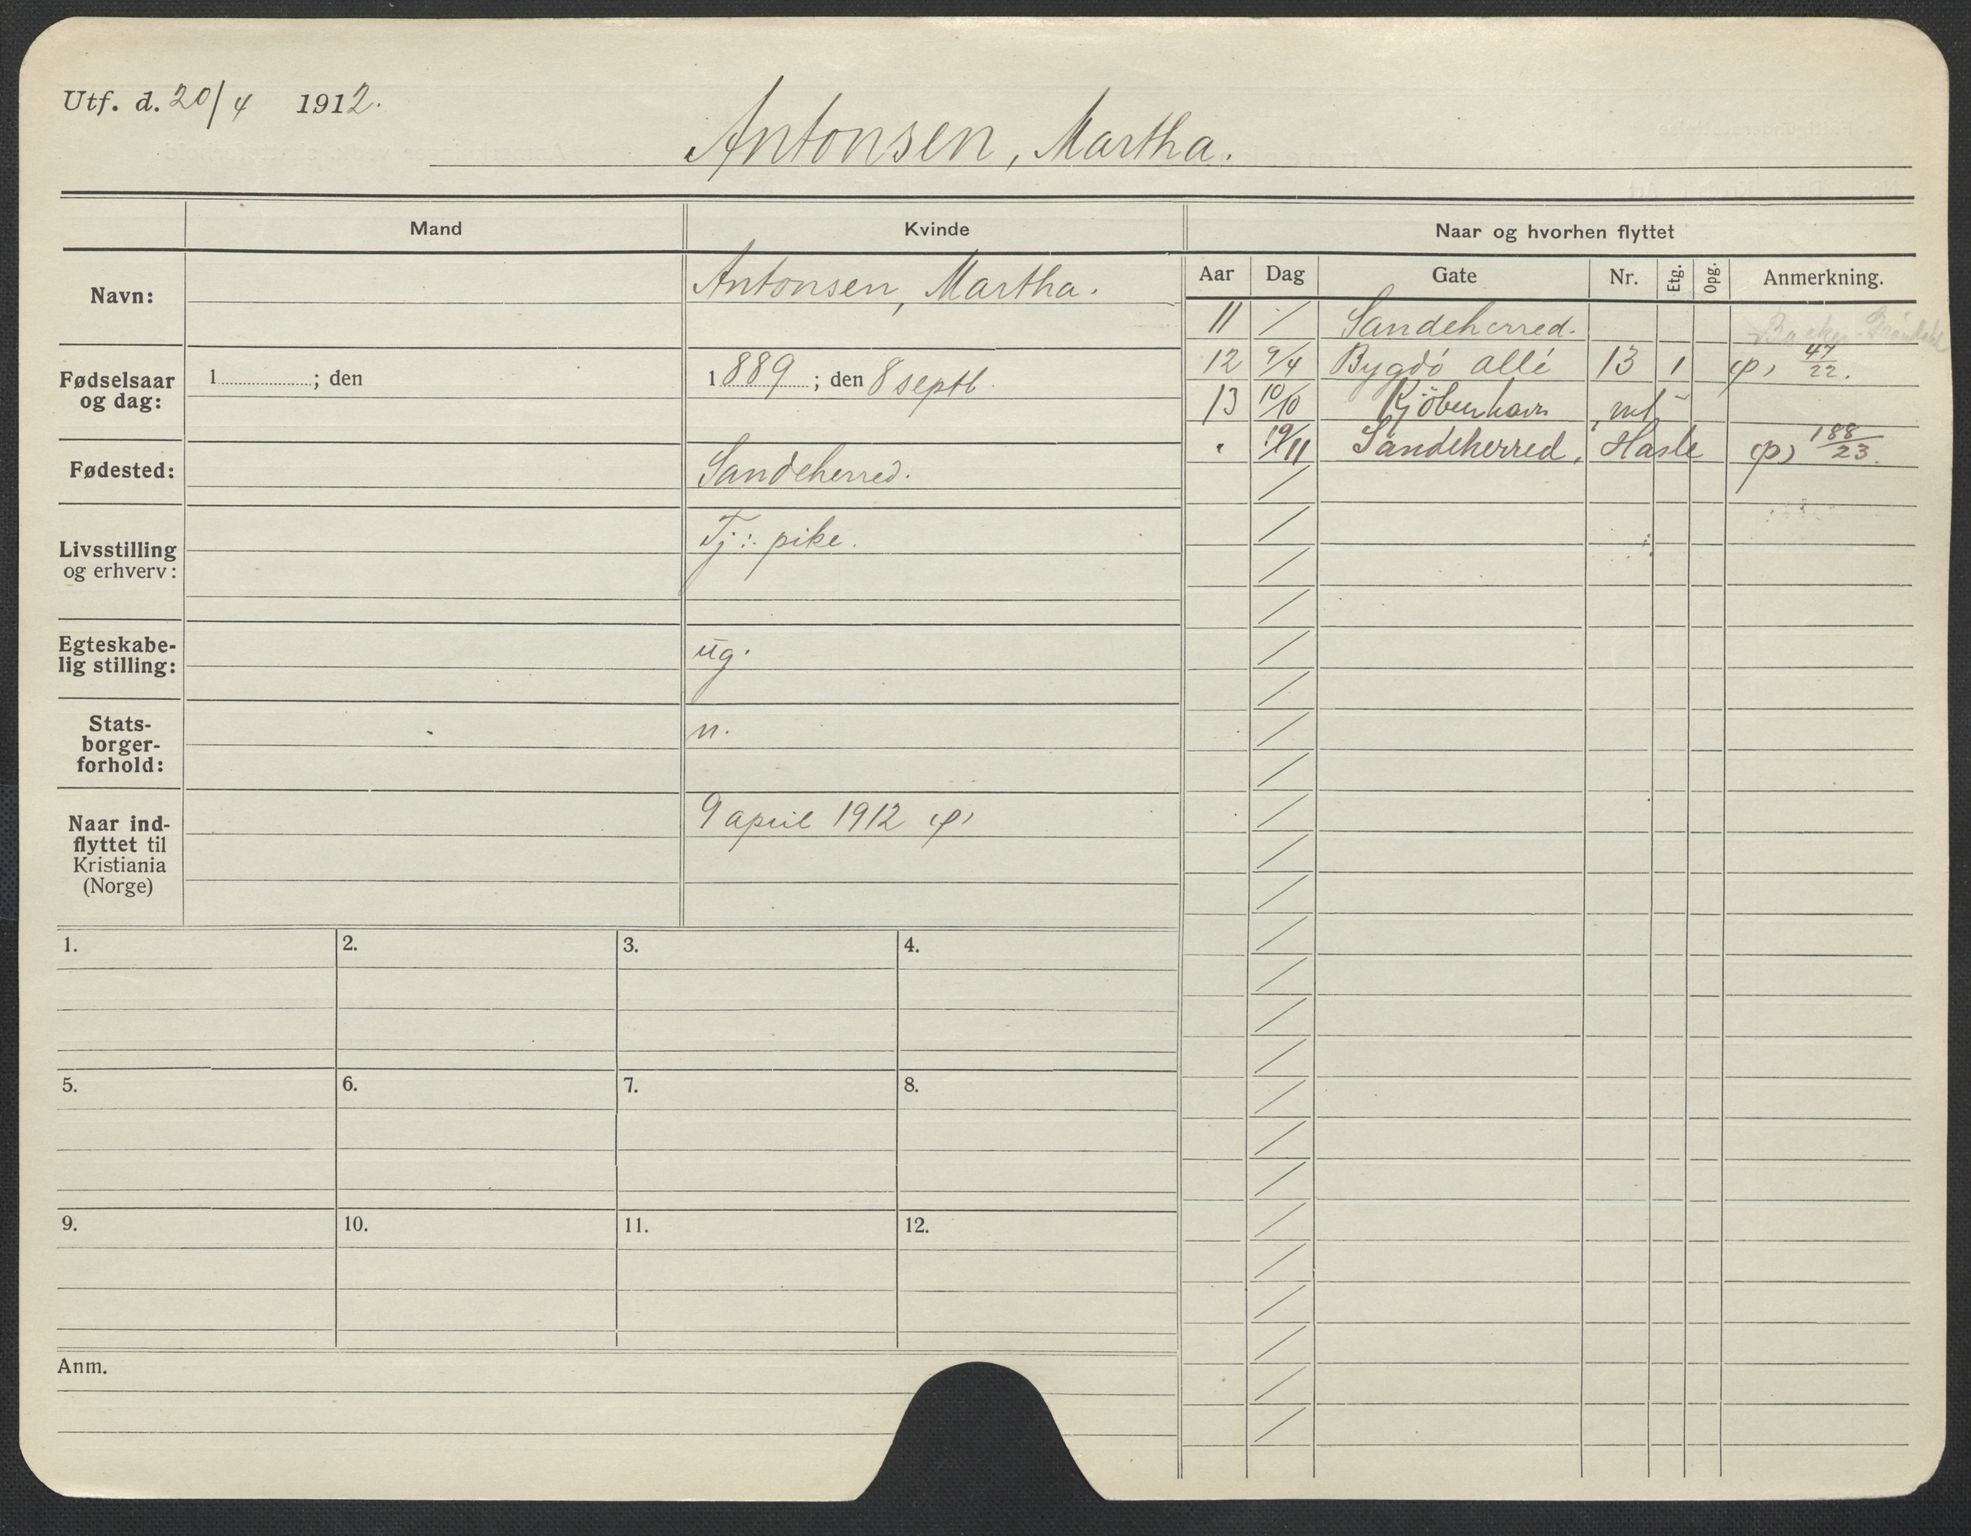 Utf. d. 20/4 1912.
Antonsen, Martha.
Mand
Kvinde
Naar og hvorhen flyttet
Navn:
Antonsen, Martha.
Fødselsaar og dag:
1 ; den
1889 ; den 8 septb.
Fødested:
Sandeherred.
Livsstilling og erhverv:
Tj: pike.
Egteskabe-
lig stilling:
ug.
Stats-
borger-
forhold:
n.
Naar ind-
flyttet til
Kristiania
(Norge)
9 april 1912 (p)
Aar Dag Gate Nr. Etg. Opg. Anmerkning.
11 / Sandeherred.
12 9/4 Bygdö allé 13 1 (p) 47/22.
13 10/10 Kjöbenhavn
" 19/11 Sandeherred, Hasle (p) 188/23.
1. 2. 3. 4.
5. 6. 7. 8.
9. 10. 11. 12.
Anm.